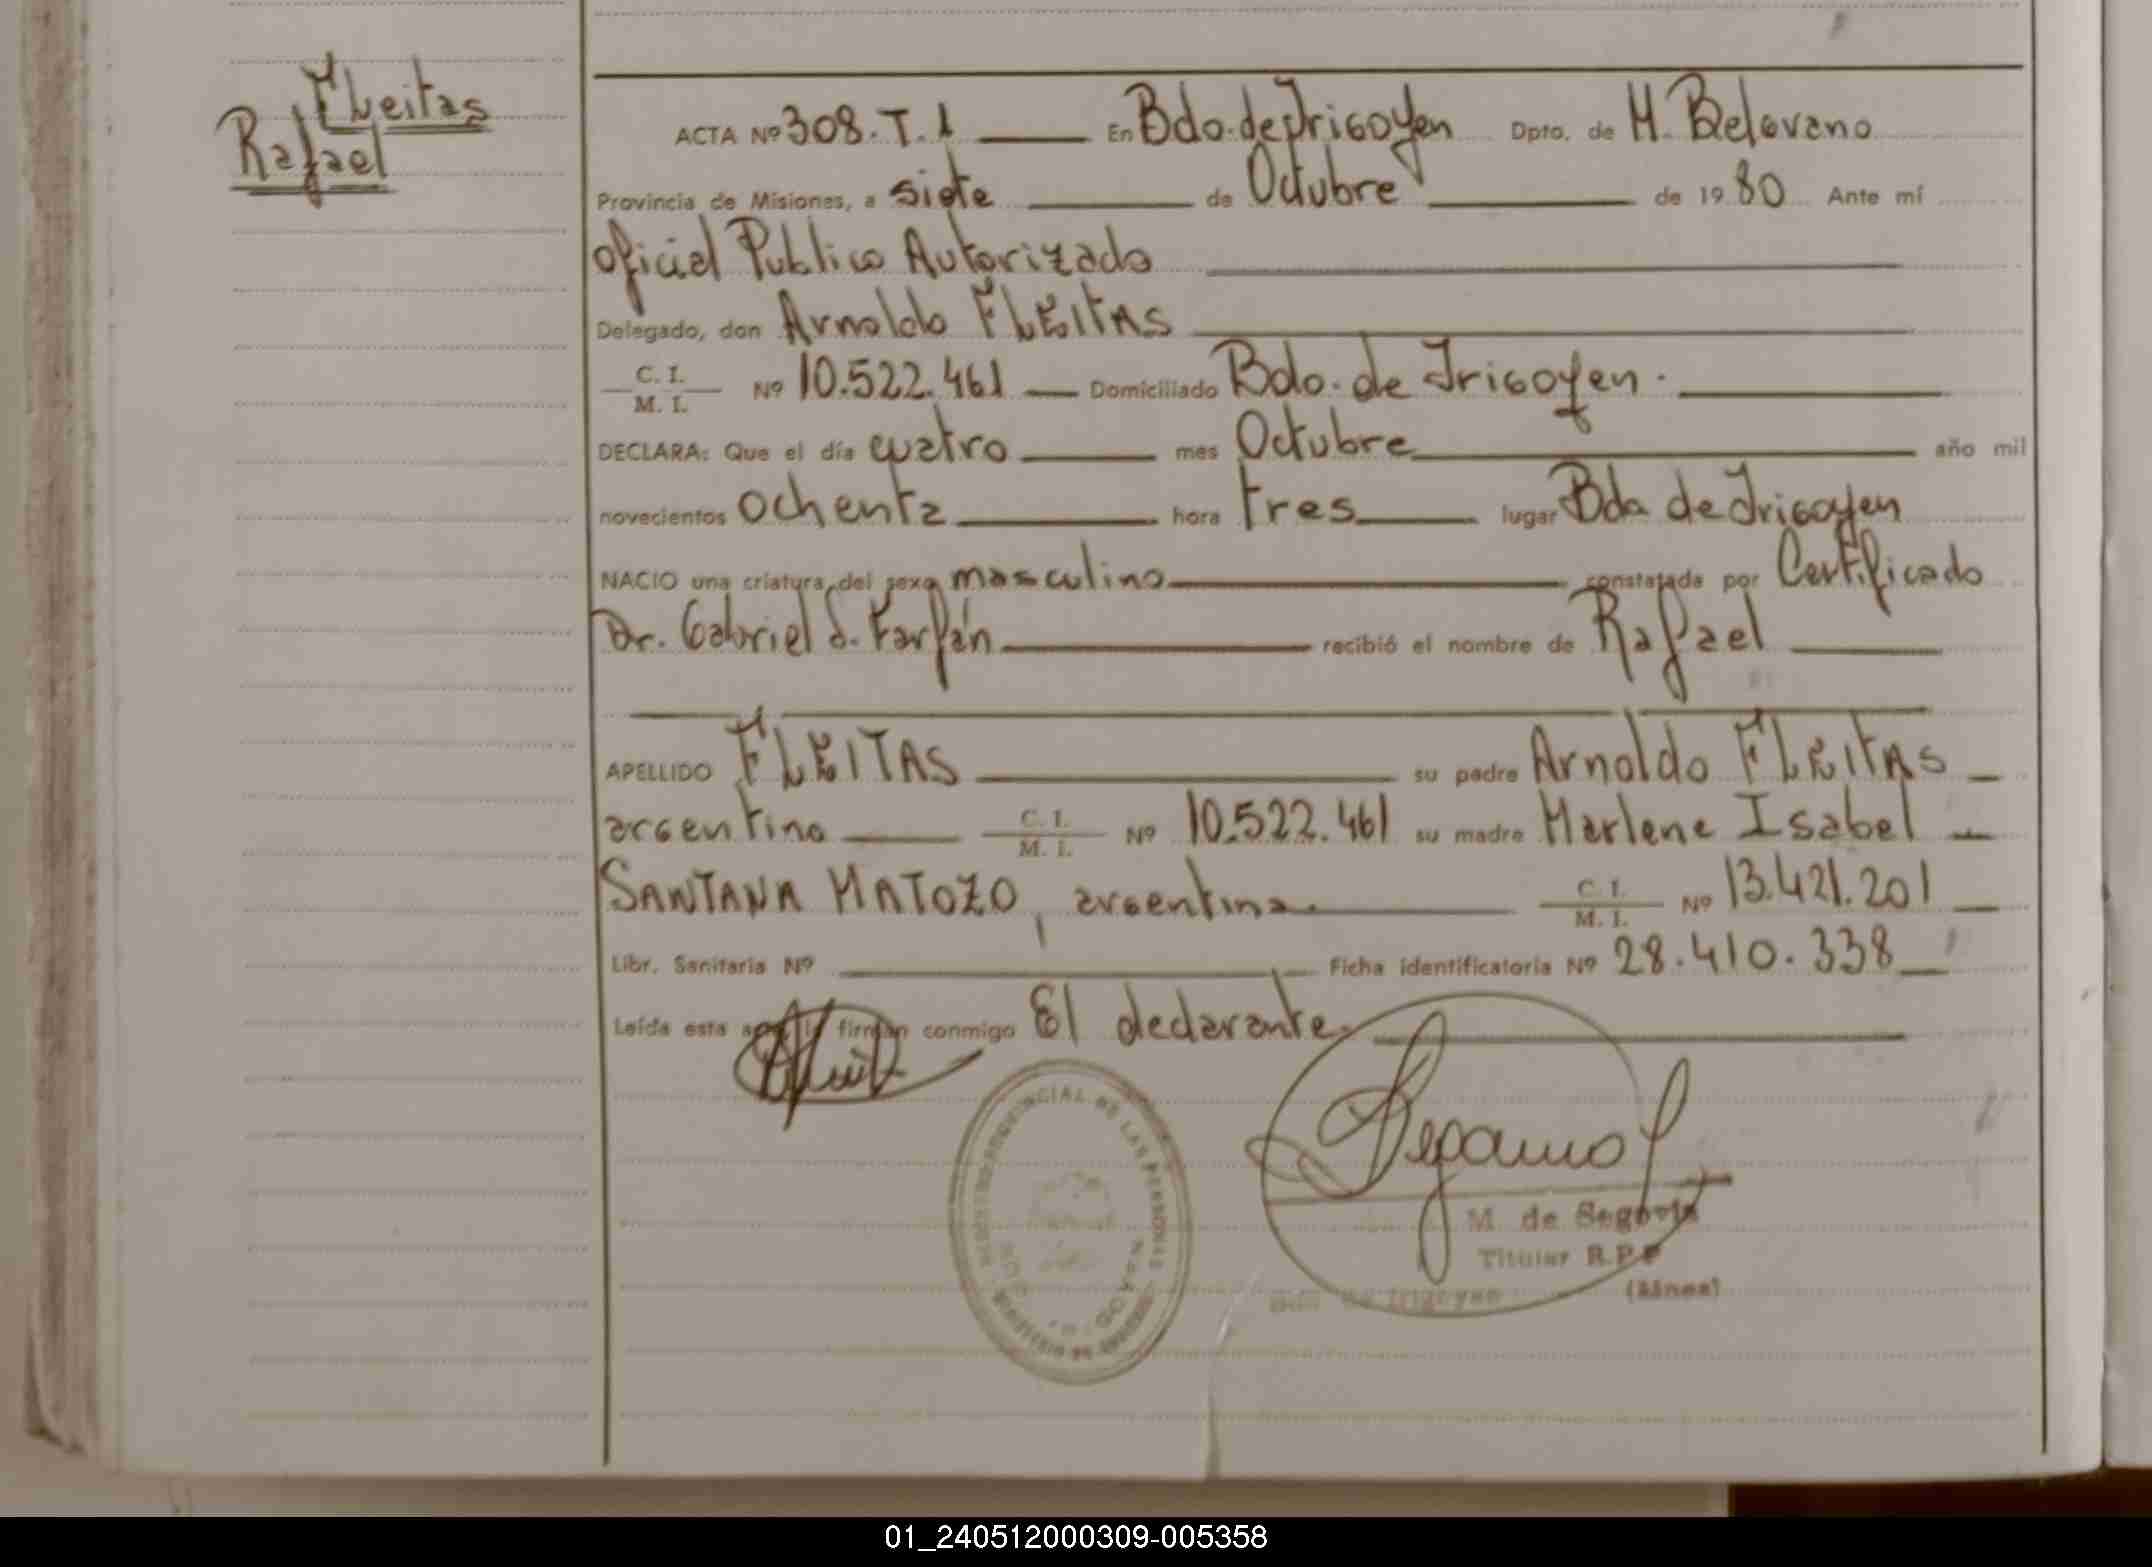 Fleitas
Rafael
ACTA Nº 308.T.1 En Bdo. de Irigoyen Dpto. de M. Belgrano
Provincia de Misiones, a siete de Octubre de 19 80 Ante mí
Oficial Publico Autorizado
Delegado, don Arnoldo FLEITAS
C. I.
M. I.
Nº 10.522.461 Domiciliado Bdo. de Irigoyen.
DECLARA: Que el día cuatro mes Octubre año mil
novecientos ochenta hora tres lugar Bdo de Irigoyen
NACIO una criatura del sexo masculino constatada por Certificado
Dr. Gabriel S. Farfán recibió el nombre de Rafael
APELLIDO FLEITAS su padre Arnoldo FLEITAS
argentino C. I. Nº 10.522.461 su madre Marlene Isabel
M. I.
SANTANA MATOZO, argentina. C. I. Nº 13.421.201
M. I.
Libr. Sanitaria Nº Ficha identificatoria Nº 28.410.338
Leída esta acta la firman conmigo El declarante.
PROVINCIAL DE LAS PERSONAS
M. de Segovia
Titular R.P.P
(Mnes)
Bdo de Irigoyen
01_240512000309-005358